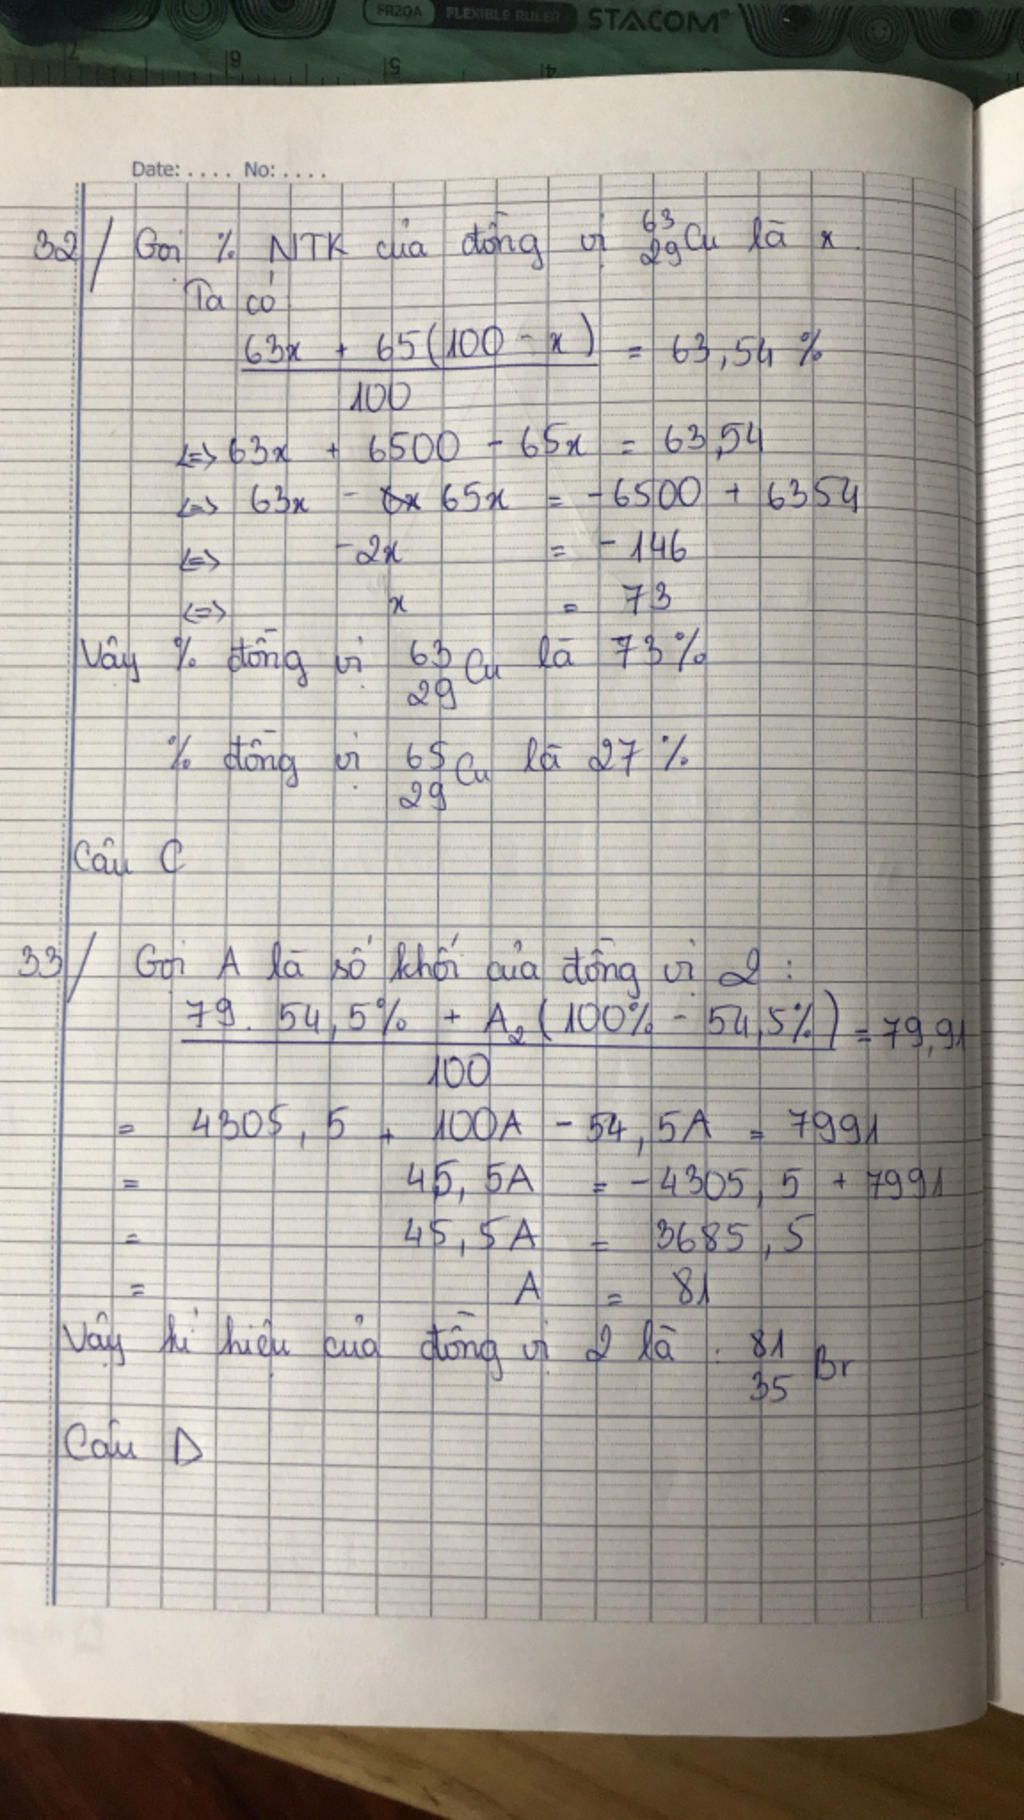 FR20A FLEXIBLE RULER STACOM
7 6 5 4
Date: .... No: ....
32/ Gọi % NTK của đồng vị ⁶³₂₉Cu là x.
Ta có
63x + 65(100 - x) / 100 = 63,54 %
<=> 63x + 6500 - 65x = 63,54
<=> 63x - 65x = -6500 + 6354
<=> -2x = -146
<=> x = 73
Vây % đồng vị ⁶³₂₉Cu là 73%
% đồng vị ⁶⁵₂₉Cu là 27%
Câu C
33/ Gọi A là số khối của đồng vị 2 :
79. 54,5% + A₂(100% - 54,5%) / 100 = 79,91
= 4305,5 + 100A - 54,5A = 7991
= 45,5A = -4305,5 + 7991
= 45,5A = 3685,5
= A = 81
Vây kí hiệu của đồng vị 2 là : ⁸¹₃₅Br
Câu D